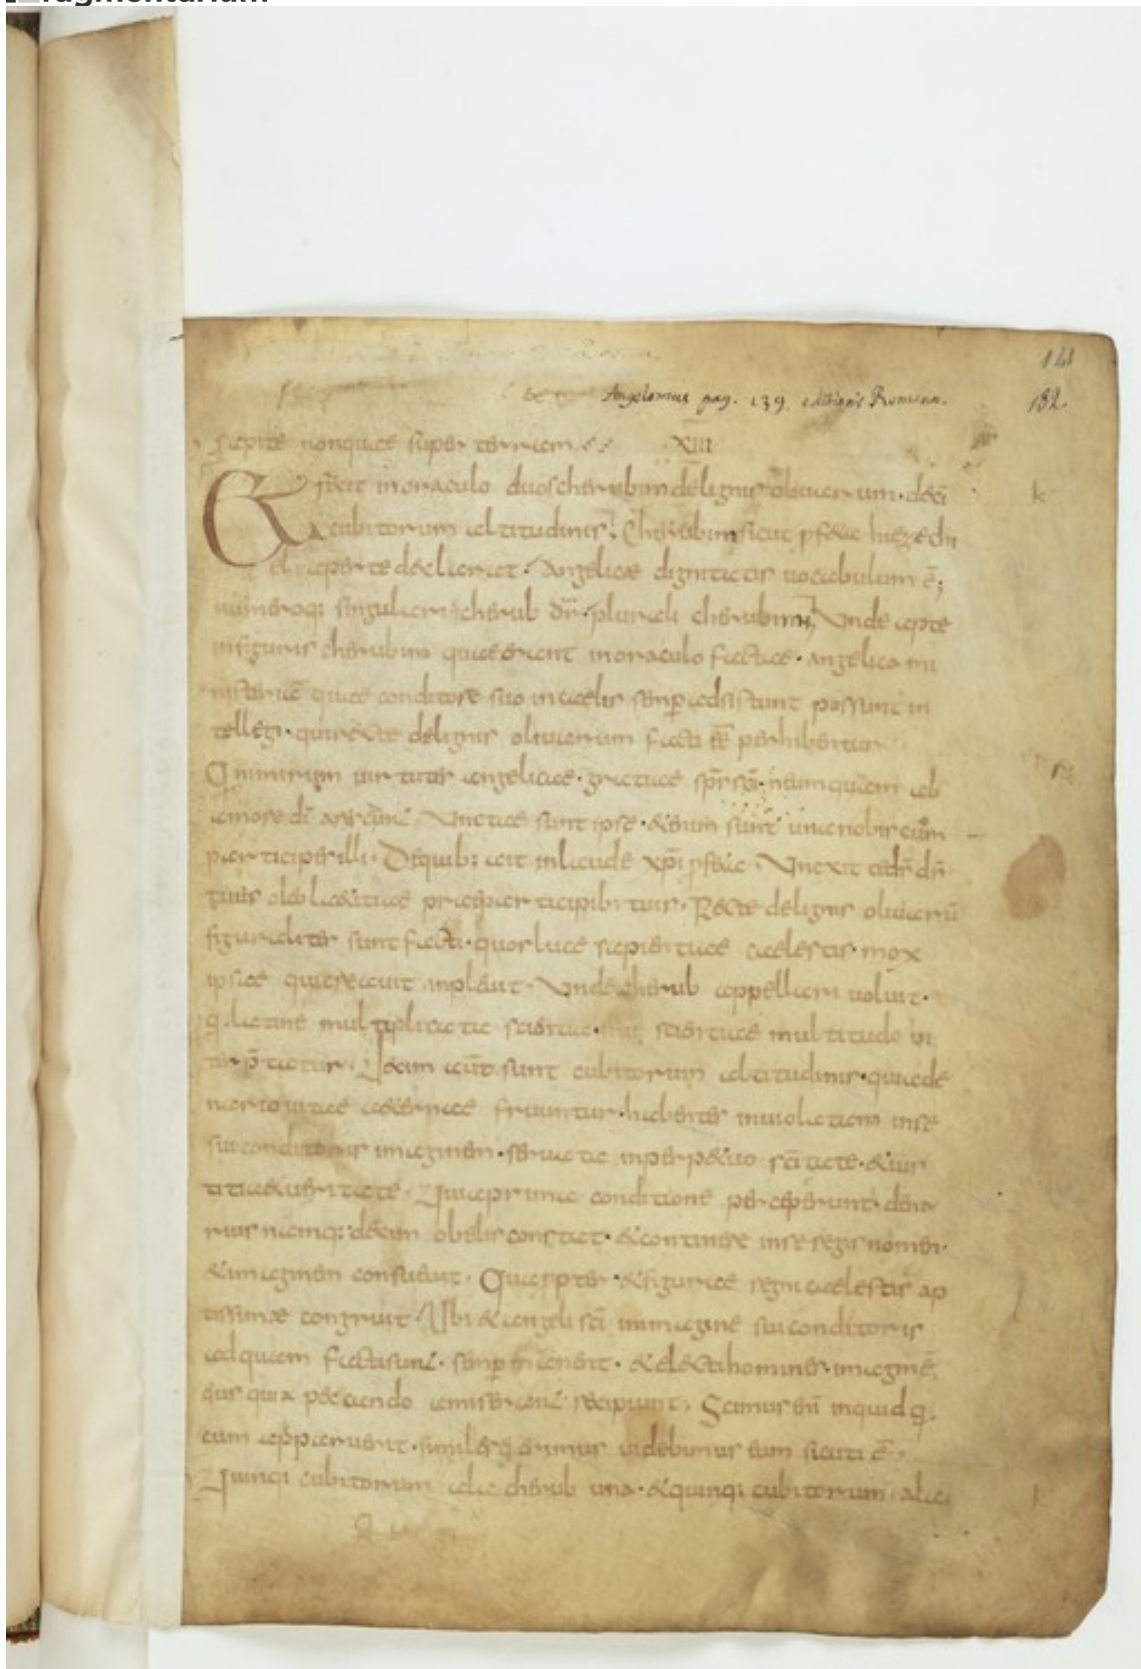 Fragmentarium
141
Angelomus pag. 139. editionis Romanae.
132.
sapite non quae super terram XIII
Et fecit in oraculo duos cherubim de lignis olivarum · dece
k
cubitorum altitudinis; Cherubim sicut ꝓfeta hiezechi
el aperte declarat · Angelicae dignitatis vocabulum ē;
numeroq; singulari cherub dr̄ · plurali cherubim; Unde apte
in figuris cherubim quae erant in oraculo factae · angelica mi
nisteria quae conditore suo in caelis semꝑ adsistunt possunt in
tellegi · qui recte de lignis olivarum facti ēē perhibentur
Q nimirum virtutes angelicae · gratiae sp̄s sc̄i · ne umquam ab
amore dī Unctae sunt ipse · &enim sunt
participes illi · De quib; ait in laude xp̄i ꝓfeta · Unexit te d̄s d̄s
tuus oleo laetitiae prae participib; tuis · Recte de lignis olivarū
figuraliter sunt facti · quos luce sapientiae caelestis mox
ipsae quas creavit inplevit · Unde cherub appellari voluit ·
q latine multiplicata scientia · scientiae multitudo in
terp̄tatur · Decem aūt sunt cubitorum altitudinis · quia de
nario vitae aeternae fruuntur · habentes inviolatam in se
sui conditoris imaginem · servata in perp&uo sc̄itate · & ius
titia & veritate · Quia prima conditione perceperunt · dena
rius namq; decem obolis constat · & continere in se regis nomen ·
& imaginem consuevit · Qua ꝓpter · & figurae regni caelestis ap
tissimae congruit · Ubi & angeli sc̄i in imagine sui conditoris
ad quam facti sunt · semꝑ manent · & electi homines · imaginē
eius quā peccando amiserant recipiunt · Scimus enī inquid q̄
cum apparuerit · similes ei erimus videbimus eum sicuti ē
Quinq; cubitorum ala cherub una · & quinq; cubitorum · alia